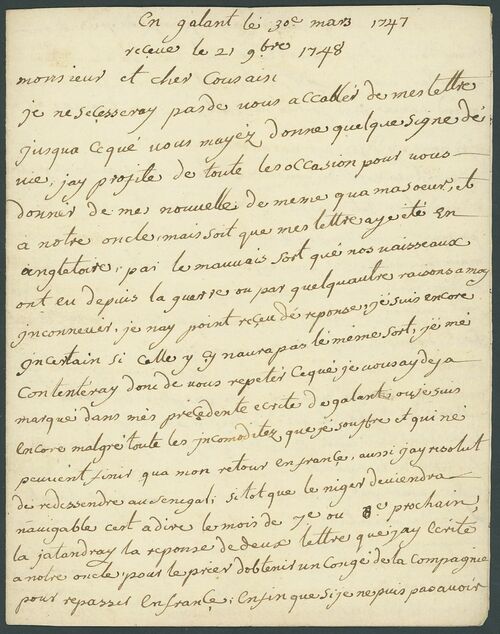 En galant le 30e mars 1747
reçeue le 21 9bre 1748
monsieur et cher Cousain
je ne sęcesseray pas de vous accallér de mes lettre
jusqua ceque vous mayéz donne quelque signe dé
vie, jay profite de toute les occasion pour vous
donnér de me nouvelle de meme qua ma soeur, et
à notre oncle, mais soit que mes lettre aye été En
angletoire, pai le mauvais sort qué nos vaisseaux
ont eu depuis la guerre ou par quelquautre raisons a moy
jnconneuer, je nay point reçeu dé reponse, je suis encore
jncertain si celle y çy naura pas lé même sort, je mé
contentéray donc de vous repetér ceque je vous ay deja
marqué dans més précédente ecrite dé galant, ou je suis
Encore malgré toute les jncomoditez que jé souffre et qui né
peuvent finir qua mon retour en france, aussi jay resolut
de redessendre au senegal; si tot que le niger deviendra
navigable cest a dire le mois de 7e ou 8e prochain,
la jatandray la reponse de deux lettre que jay Ecrite
a notre oncle, pour le prier dobtenir un Congé de la Compagnie
pour repasser En france; Enfin que si je ne puis pas avoir